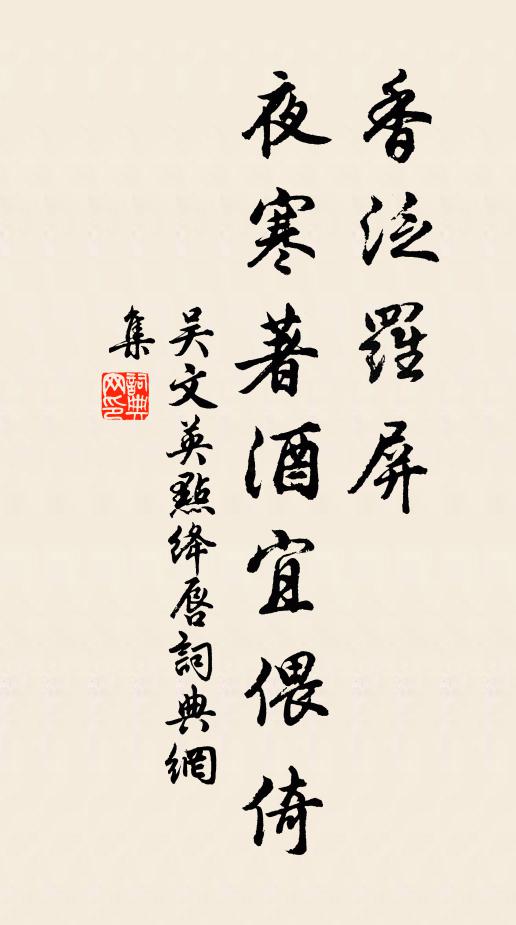 香泛羅屏
夜寒著酒宜偎倚
吳文英點絳唇詞典網
集
詞典網印